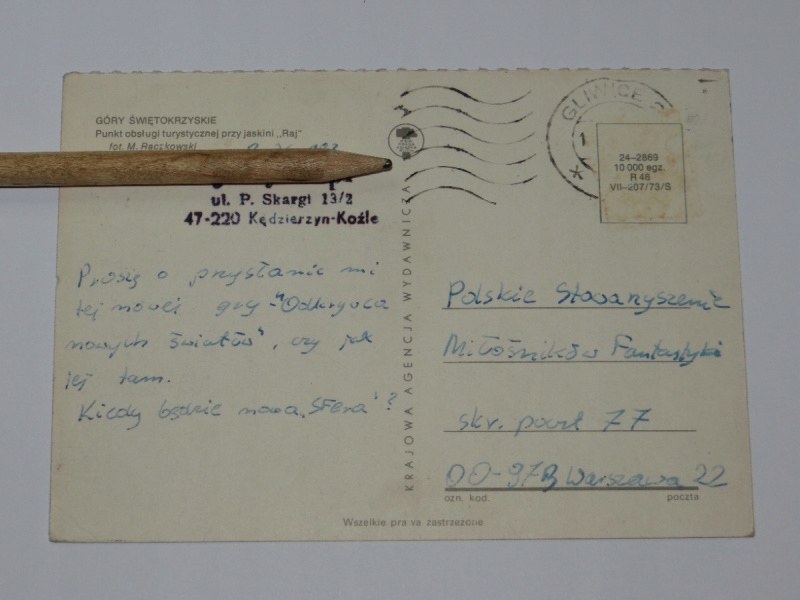 GÓRY ŚWIĘTOKRZYSKIE
Punkt obsługi turystycznej przy jaskini „Raj"
fot. M. Raczkowski
ul. P. Skargi 13/2
47-220 Kędzierzyn-Koźle
Proszę o przysłanie mi
tej nowej gry "Odkrywca
nowych światów", czy jak
jej tam.
Kiedy będzie nowa „SFera"?
KRAJOWA AGENCJA WYDAWNICZA
GLIWICE
24-2869
10 000 egz.
R 46
VII-207/73/S
Polskie Stowarzyszenie
Miłośników Fantastyki
skr. poczt 77
Warszawa 22
ozn. kod. poczta
Wszelkie prawa zastrzeżone